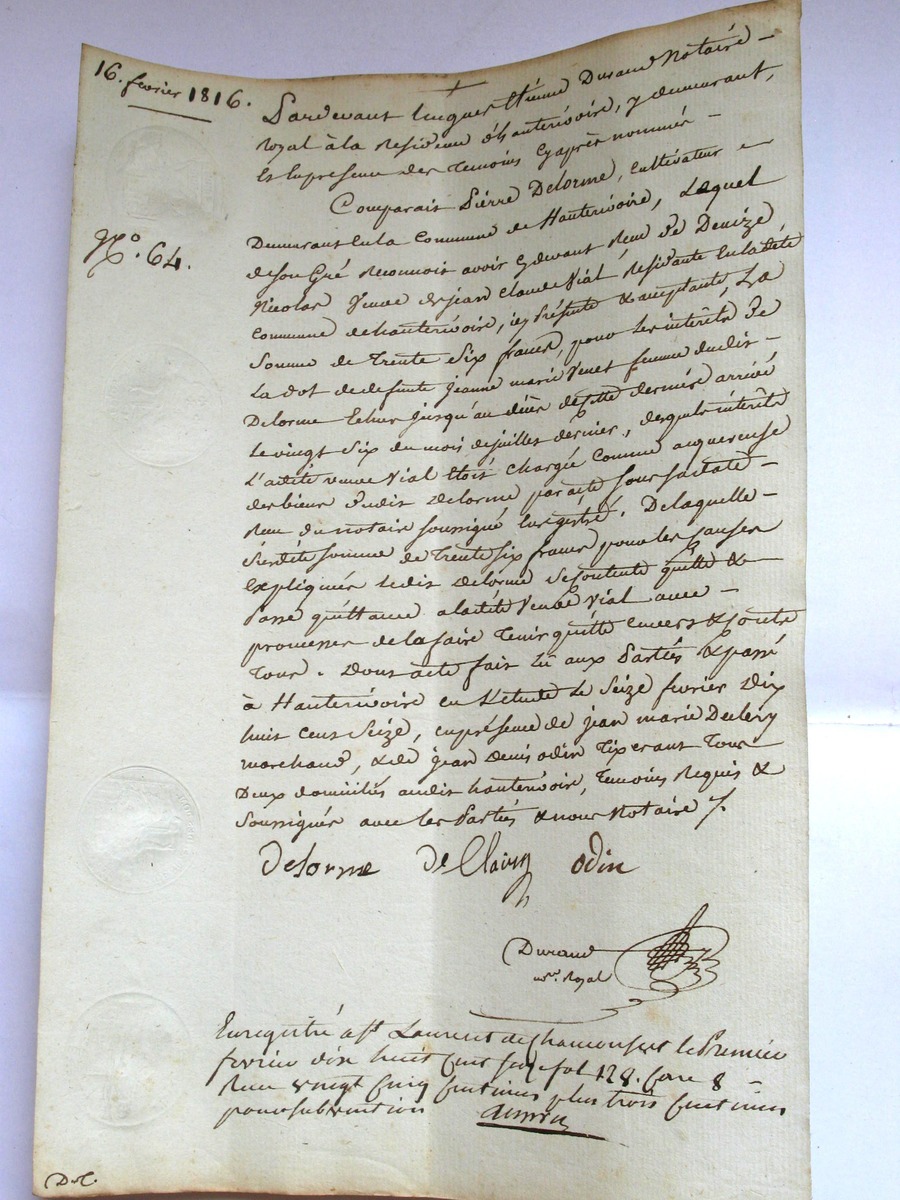 16. fevrier 1816.
Pardevant Jacques Etienne Durand Notaire
royal à la Residence d'hauterivoire, y demeurant,
et en presence des Temoins Cyaprès nommés
Comparait Pierre Delorme, Cultivateur
Demeurant En la Commune de Hauterivoire, Lequel
N.° 64.
de son Gré Reconnoit avoir Cydevant Reçu de Denize
Nicolas Veuve de jean Claude Vial Residante En ladité
Commune de hauterivoire, icy Présente & acceptante, La
Somme de Trente Six francs, pour les intérêts de
La dot de defunte jeanne marie Venet femme dudit
Delorme Echus jusqu'au dela fette derniér arrivé
Le vingt Six du mois de juillet dérnier, desquels intérêts
L'adité veuve Vial Etoit Chargée Comme acquereuse
des biens dudit Delorme par acté
Reçu du notaire soussigné Enregistré. De laquelle
Susdité somme de Trente Six francs pour les Causes
Expliquées ledit Delorme Se Contente quitte &
Passe quittance a ladité Veuve Vial avec
promesse de la faire Tenir quitte Envers & Contre
Tous. Dont acte fait Lû aux Partiés & passé
à Hauterivoire en L'etude Le Seize fevrier Dix
huit Cent Seize, en présence de jean marie
marchand, & de jean denis odin Tixerant Tous
Deux domiciliés audit hauterivoire, Temoins Requis &
Soussignés avec les Partiés & nous Notaire
Delorme odin
Durand
nre. Royal
Enregistré a St Laurent de Chamousset le Premier
fevrier dix huit Cent Seize fol 128. Case 8
Reçu vingt Cinq Centimes plus trois Centimes
pour subvention